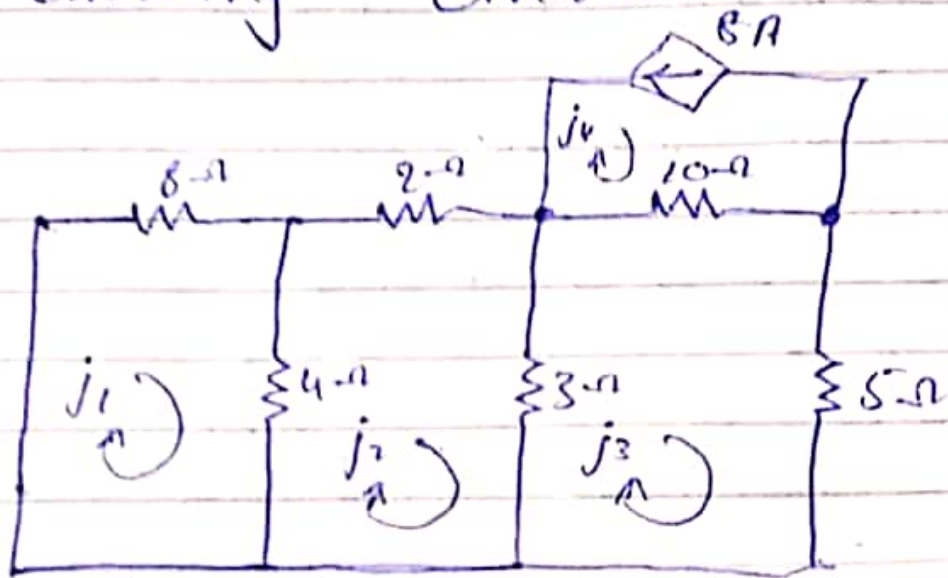 8 A
j4
8 Ω 2 Ω 10 Ω
j1 4 Ω j2 3 Ω j3 5 Ω